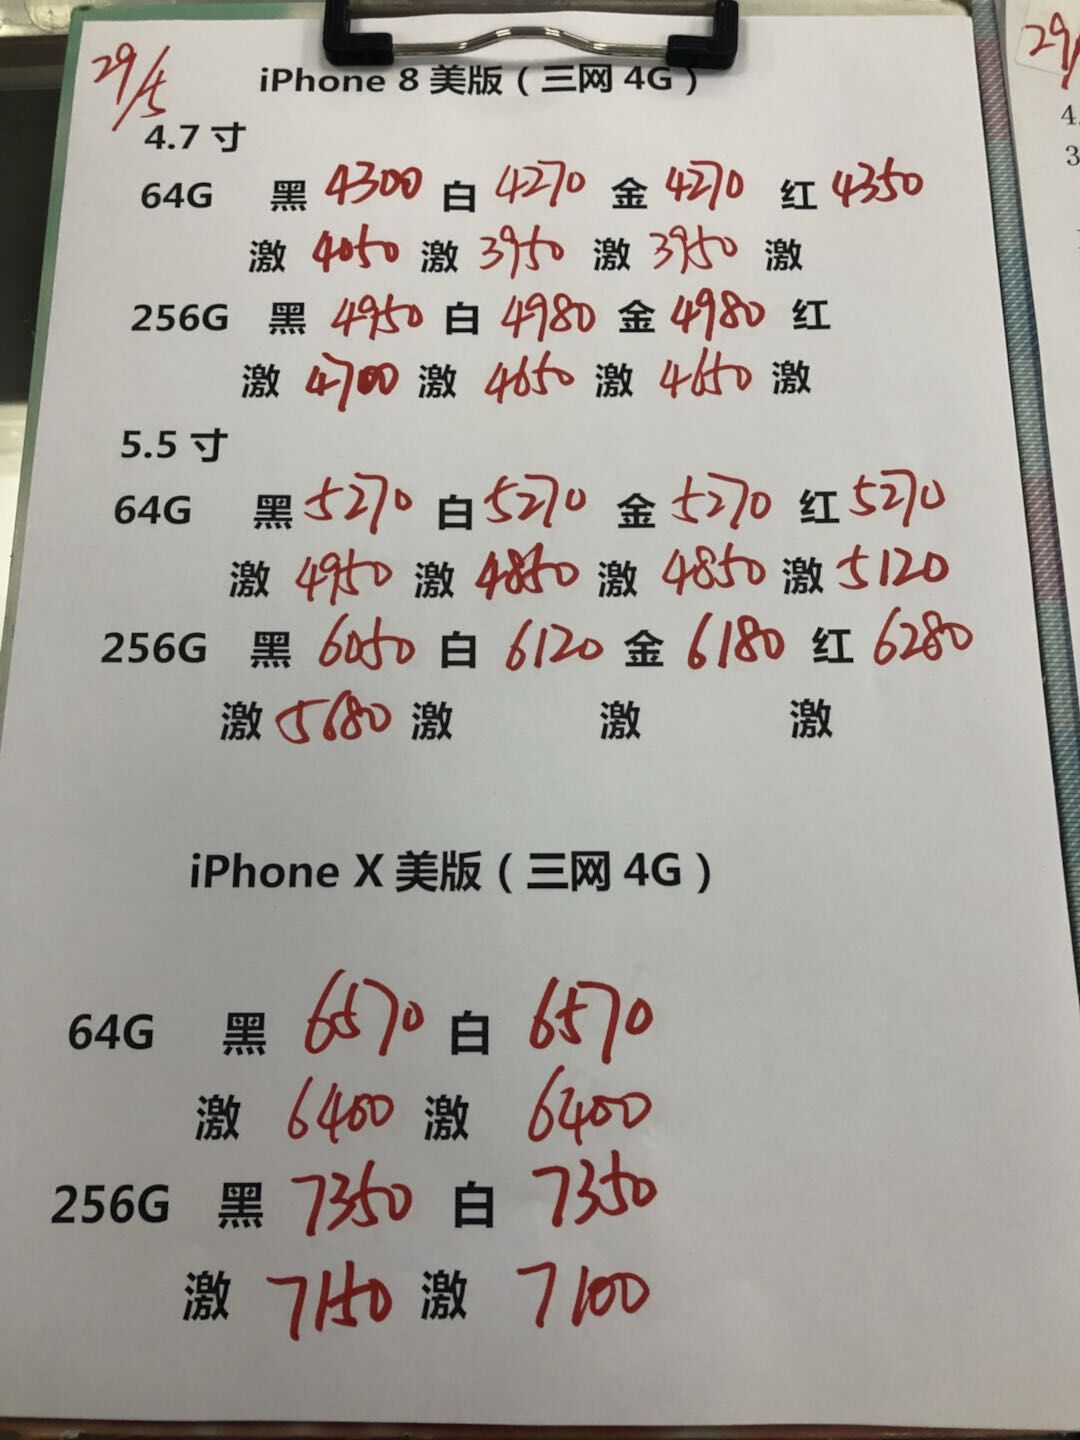 29/5
iPhone 8 美版（三网 4G）
4.7 寸
64G 黑 4300 白 4270 金 4270 红 4350
激 4050 激 3950 激 3950 激
256G 黑 4950 白 4980 金 4980 红
激 4700 激 4650 激 4650 激
5.5 寸
64G 黑 5270 白 5270 金 5270 红 5270
激 4950 激 4850 激 4850 激 5120
256G 黑 6050 白 6120 金 6180 红 6280
激 5680 激 激 激
iPhone X 美版（三网 4G）
64G 黑 6570 白 6570
激 6400 激 6400
256G 黑 7350 白 7350
激 7150 激 7100
29/
4.
3